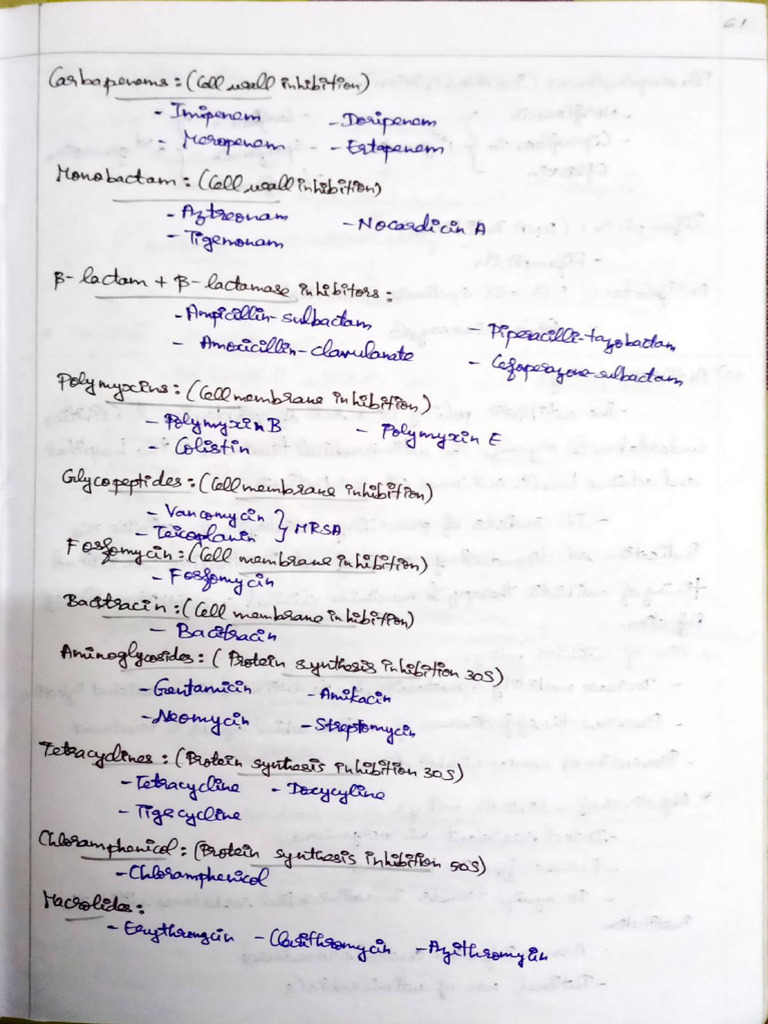 61
Carbapenems: (Cell wall inhibition)
- Imipenem - Doripenem
- Meropenem - Ertapenem
Monobactam: (Cell wall inhibition)
- Aztreonam - Nocardicin A
- Tigemonam
β-lactam + β-lactamase inhibitors:
- Ampicillin-sulbactam - Piperacillin-tazobactam
- Amoxicillin-clavulanate - Cefoperazone-sulbactam
Polymyxins: (Cell membrane inhibition)
- Polymyxin B - Polymyxin E
- Colistin
Glycopeptides: (Cell membrane inhibition)
- Vancomycin } MRSA
- Teicoplanin
Fosfomycin: (Cell membrane inhibition)
- Fosfomycin
Bacitracin: (Cell membrane inhibition)
- Bacitracin
Aminoglycosides: (Protein synthesis inhibition 30S)
- Gentamicin - Amikacin
- Neomycin - Streptomycin
Tetracyclines: (Protein synthesis inhibition 30S)
- Tetracycline - Doxycyline
- Tigecycline
Chloramphenicol: (Protein synthesis inhibition 50S)
- Chloramphenicol
Macrolides:
- Erythromycin - Clarithromycin - Azithromycin